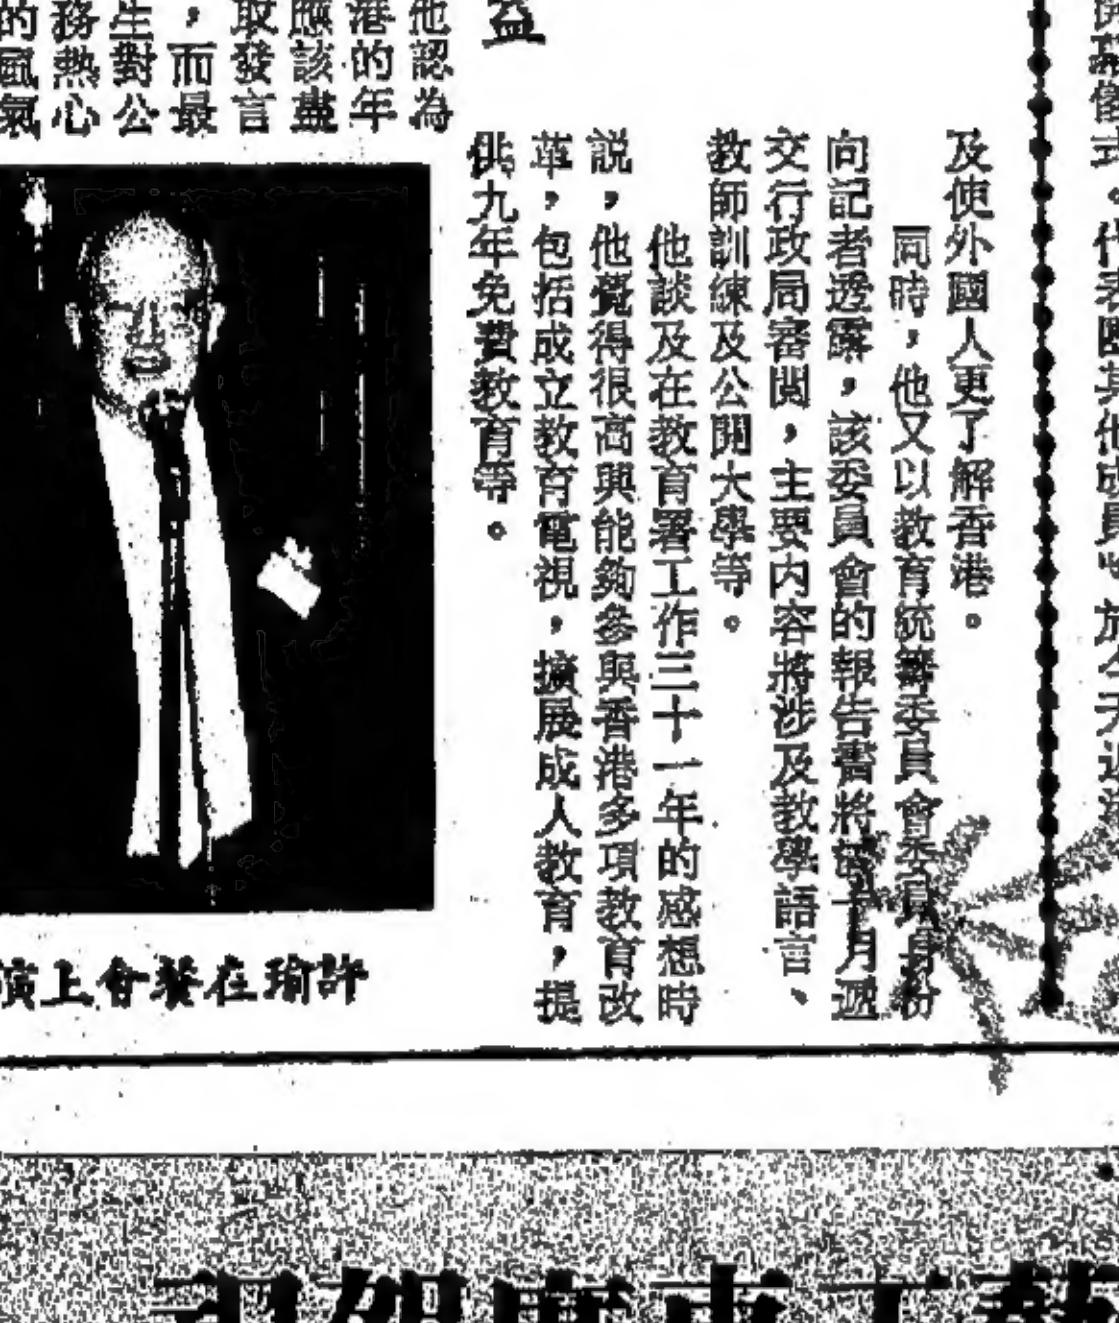 及使外國人更了解香港。
同時，他又以教育統籌委員會委員身份
向記者透露，該委員會的報告書將於十月遞
交行政局審閱，主要內容將涉及教學語言、
教師訓練及公開大學等。
他談及在教育署工作三十一年的感想時
説，他覺得很高興能夠參與香港多項教育改
革，包括成立教育電視，擴展成人教育，提
供九年免費教育等。
益
他認為
港的年
應該盡
取發言
，而最
生對公
務熱心
的風氣
許瑜在餐會上演